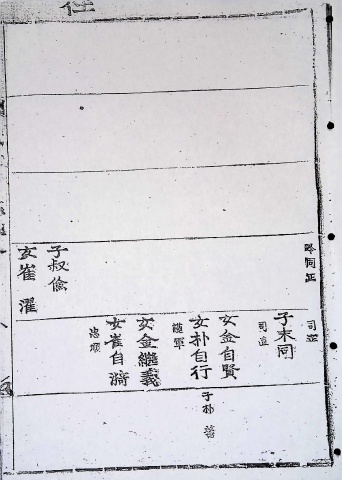 任
令同正
子叔偸
女崔濯
司直
子末同
司直
女金自賢
女朴自行
護軍
女金繼義
女崔自漪
忠順
子朴蕃